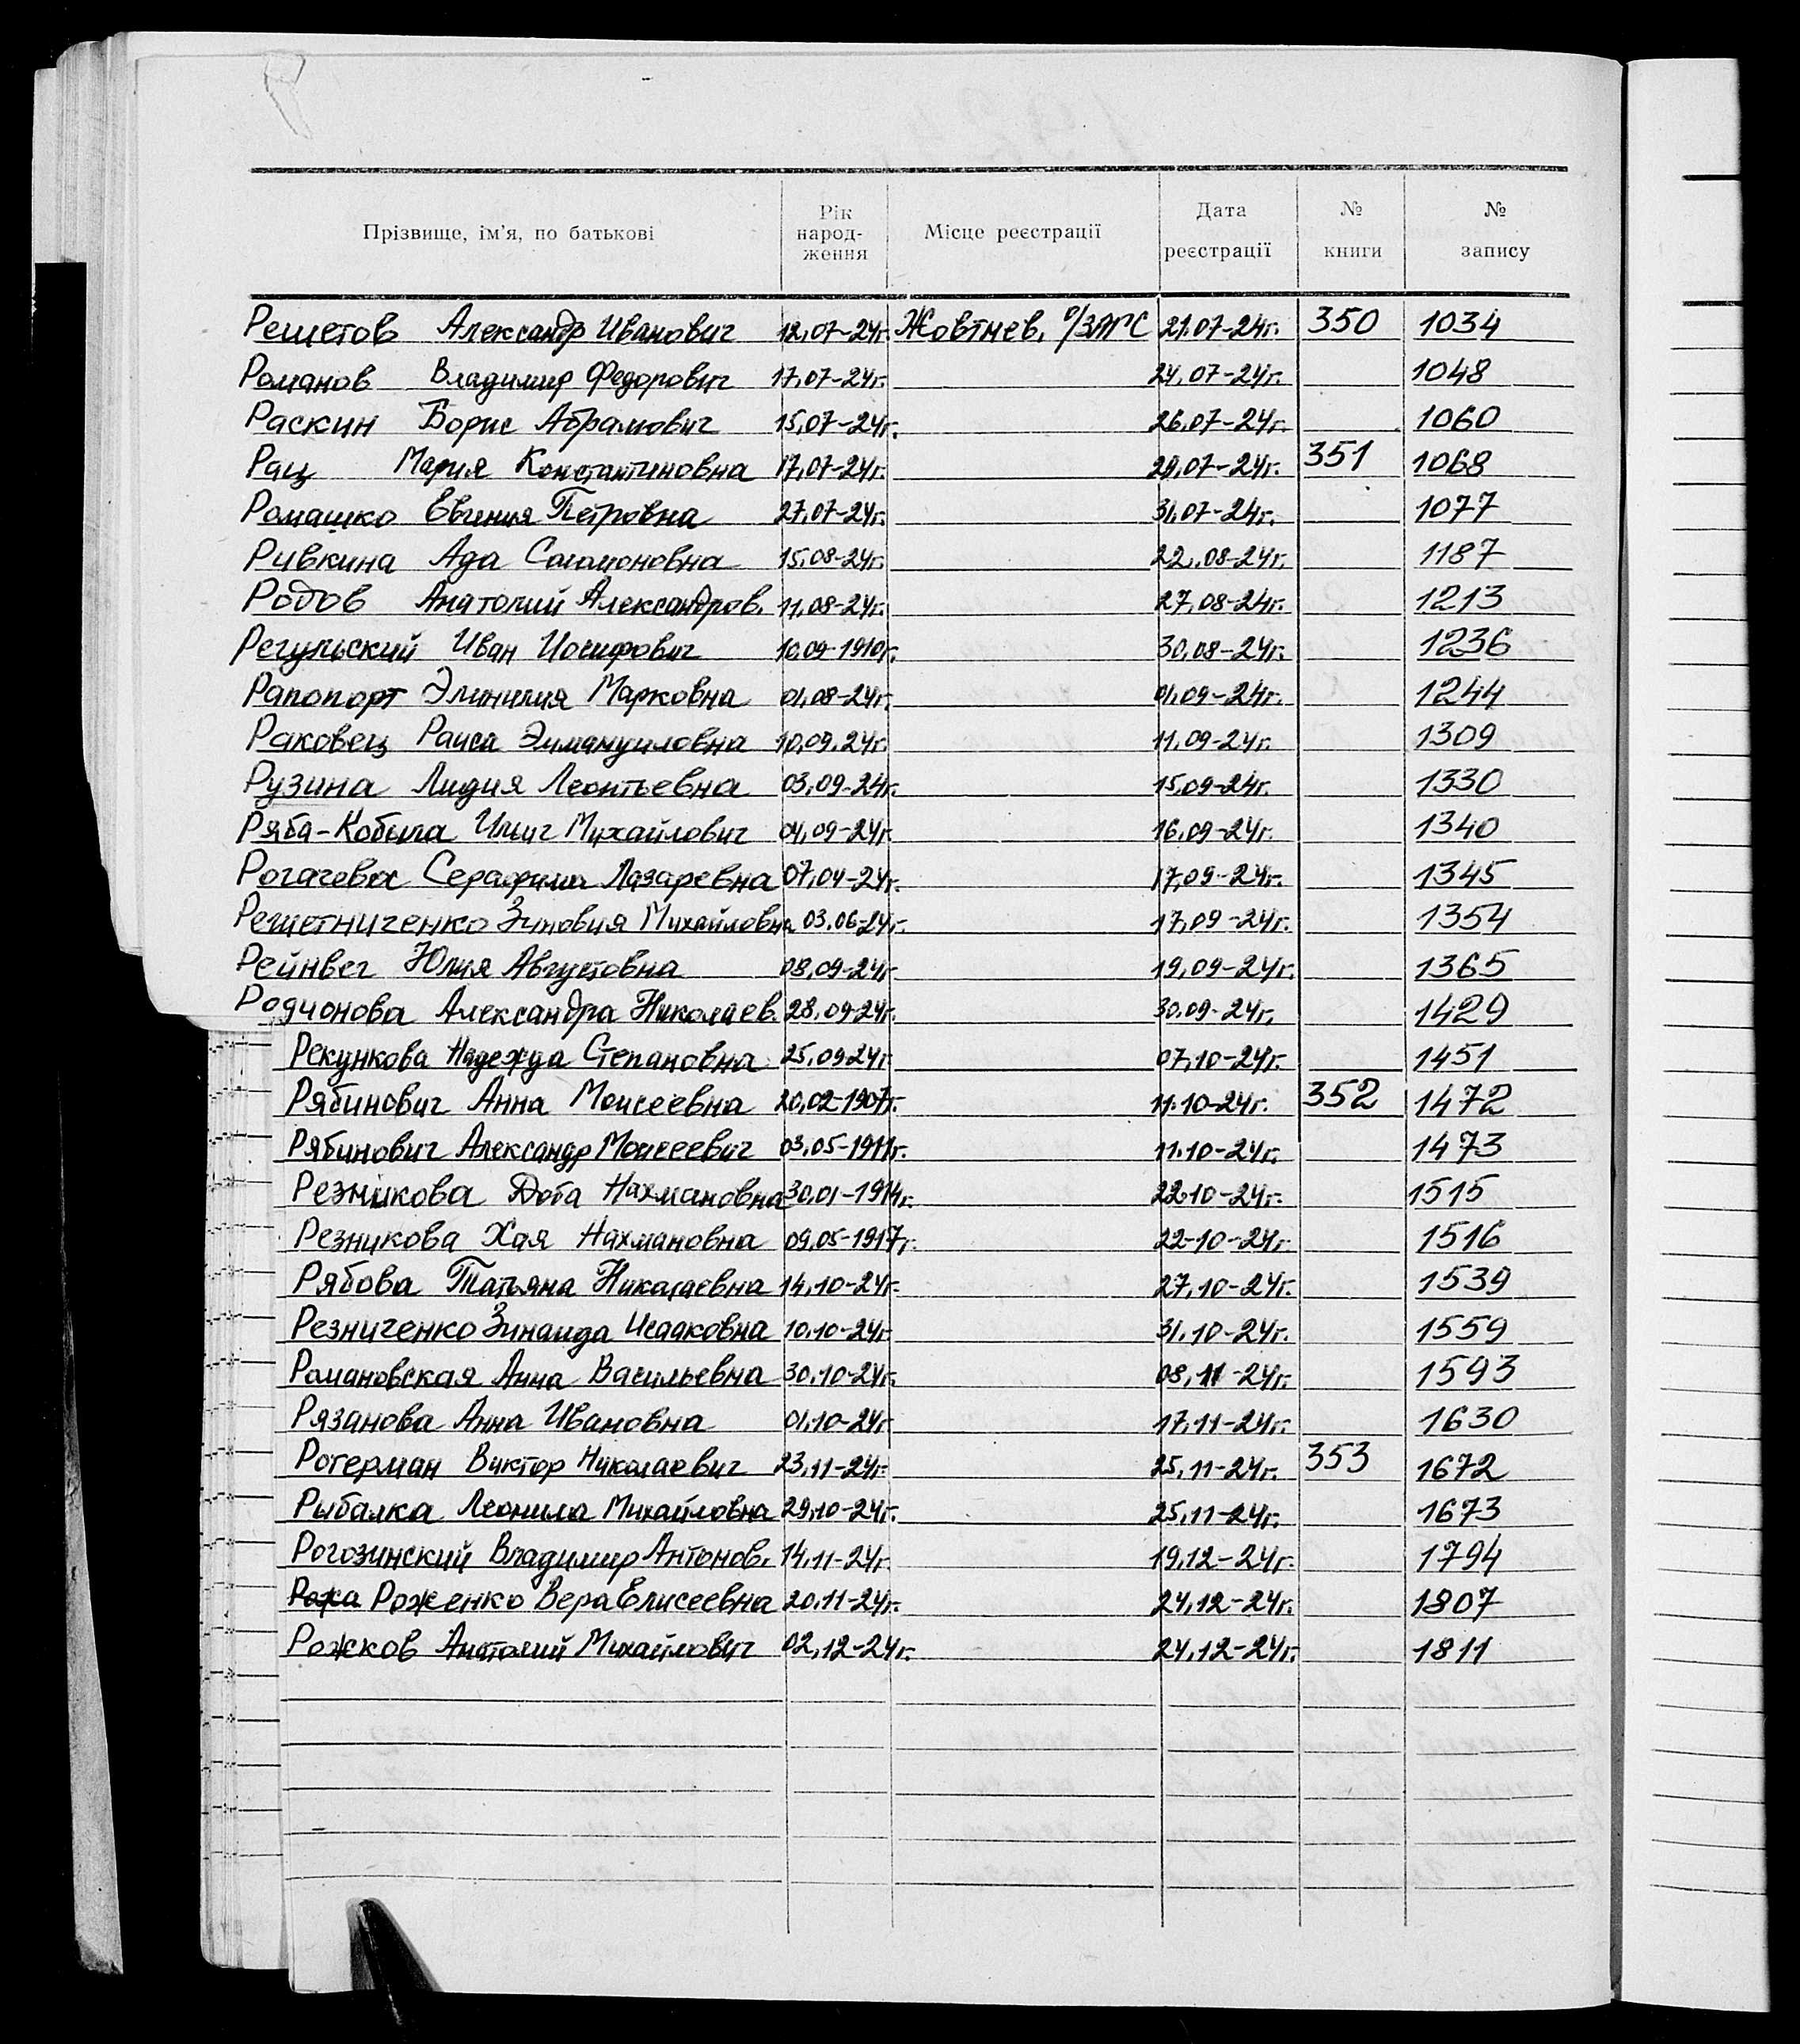 Прізвище, ім'я, по батькові Рік народ-ження Місце реєстрації Дата реєстрації № книги № запису
Решетов Александр Иванович 12.07-24г. Жовтнев. о/ЗАГС 21.07-24г. 350 1034
Романов Владимир Федорович 17.07-24г. 24.07-24г. 1048
Раскин Борис Абрамович 15.07-24г. 26.07-24г. 1060
Рац Мария Константиновна 17.07-24г. 29.07-24г. 351 1068
Ромашко Евгения Петровна 27.07-24г. 31.07-24г. 1077
Ривкина Ада Соломоновна 15.08-24г. 22.08-24г. 1187
Родов Анатолий Александров. 11.08-24г. 27.08-24г. 1213
Регульский Иван Иосифович 10.09-1910г. 30.08-24г. 1236
Рапопорт Марковна 01.08-24г. 01.09-24г. 1244
Раковец Раиса Эммануиловна 10.09.24г. 11.09-24г. 1309
Рузина Лидия Леонтьевна 03.09-24г. 15.09-24г. 1330
Ряба-Кобыла Ильич Михайлович 04.09-24г. 16.09-24г. 1340
Рогачева Серафима Лазаревна 07.04-24г. 17.09-24г. 1345
Решетниченко Зиновия Михайловна 03.06-24г. 17.09-24г. 1354
Рейнвег Юлия Августовна 08.09-24г. 19.09-24г. 1365
Родионова Александра Николаев. 28.09-24г. 30.09-24г. 1429
Рекункова Надежда Степановна 25.09-24г. 07.10-24г. 1451
Рябинович Анна Моисеевна 20.02-1907г. 11.10-24г. 352 1472
Рябинович Александр Моисеевич 03.05-1911г. 11.10-24г. 1473
Резникова Дота Нахмановна 30.01-1914г. 22.10-24г. 1515
Резникова Хая Нахмановна 09.05-1917г. 22-10-24г. 1516
Рябова Татьяна Николаевна 14.10-24г. 27.10-24г. 1539
Резниченко Зинаида Исааковна 10.10-24г. 31.10-24г. 1559
Романовская Анна Васильевна 30.10-24г. 08.11-24г. 1593
Рязанова Анна Ивановна 01.10-24г. 17.11-24г. 1630
Ротерман Виктор Николаевич 23.11-24г. 25.11-24г. 353 1672
Рыбалка Леонила Михайловна 29.10-24г. 25.11-24г. 1673
Рогозинский Владимир Антонов. 14.11-24г. 19.12-24г. 1794
Рожа Роженко Вера Елисеевна 20.11-24г. 24.12-24г. 1807
Рожков Анатолий Михайлович 02.12-24г. 24.12-24г. 1811